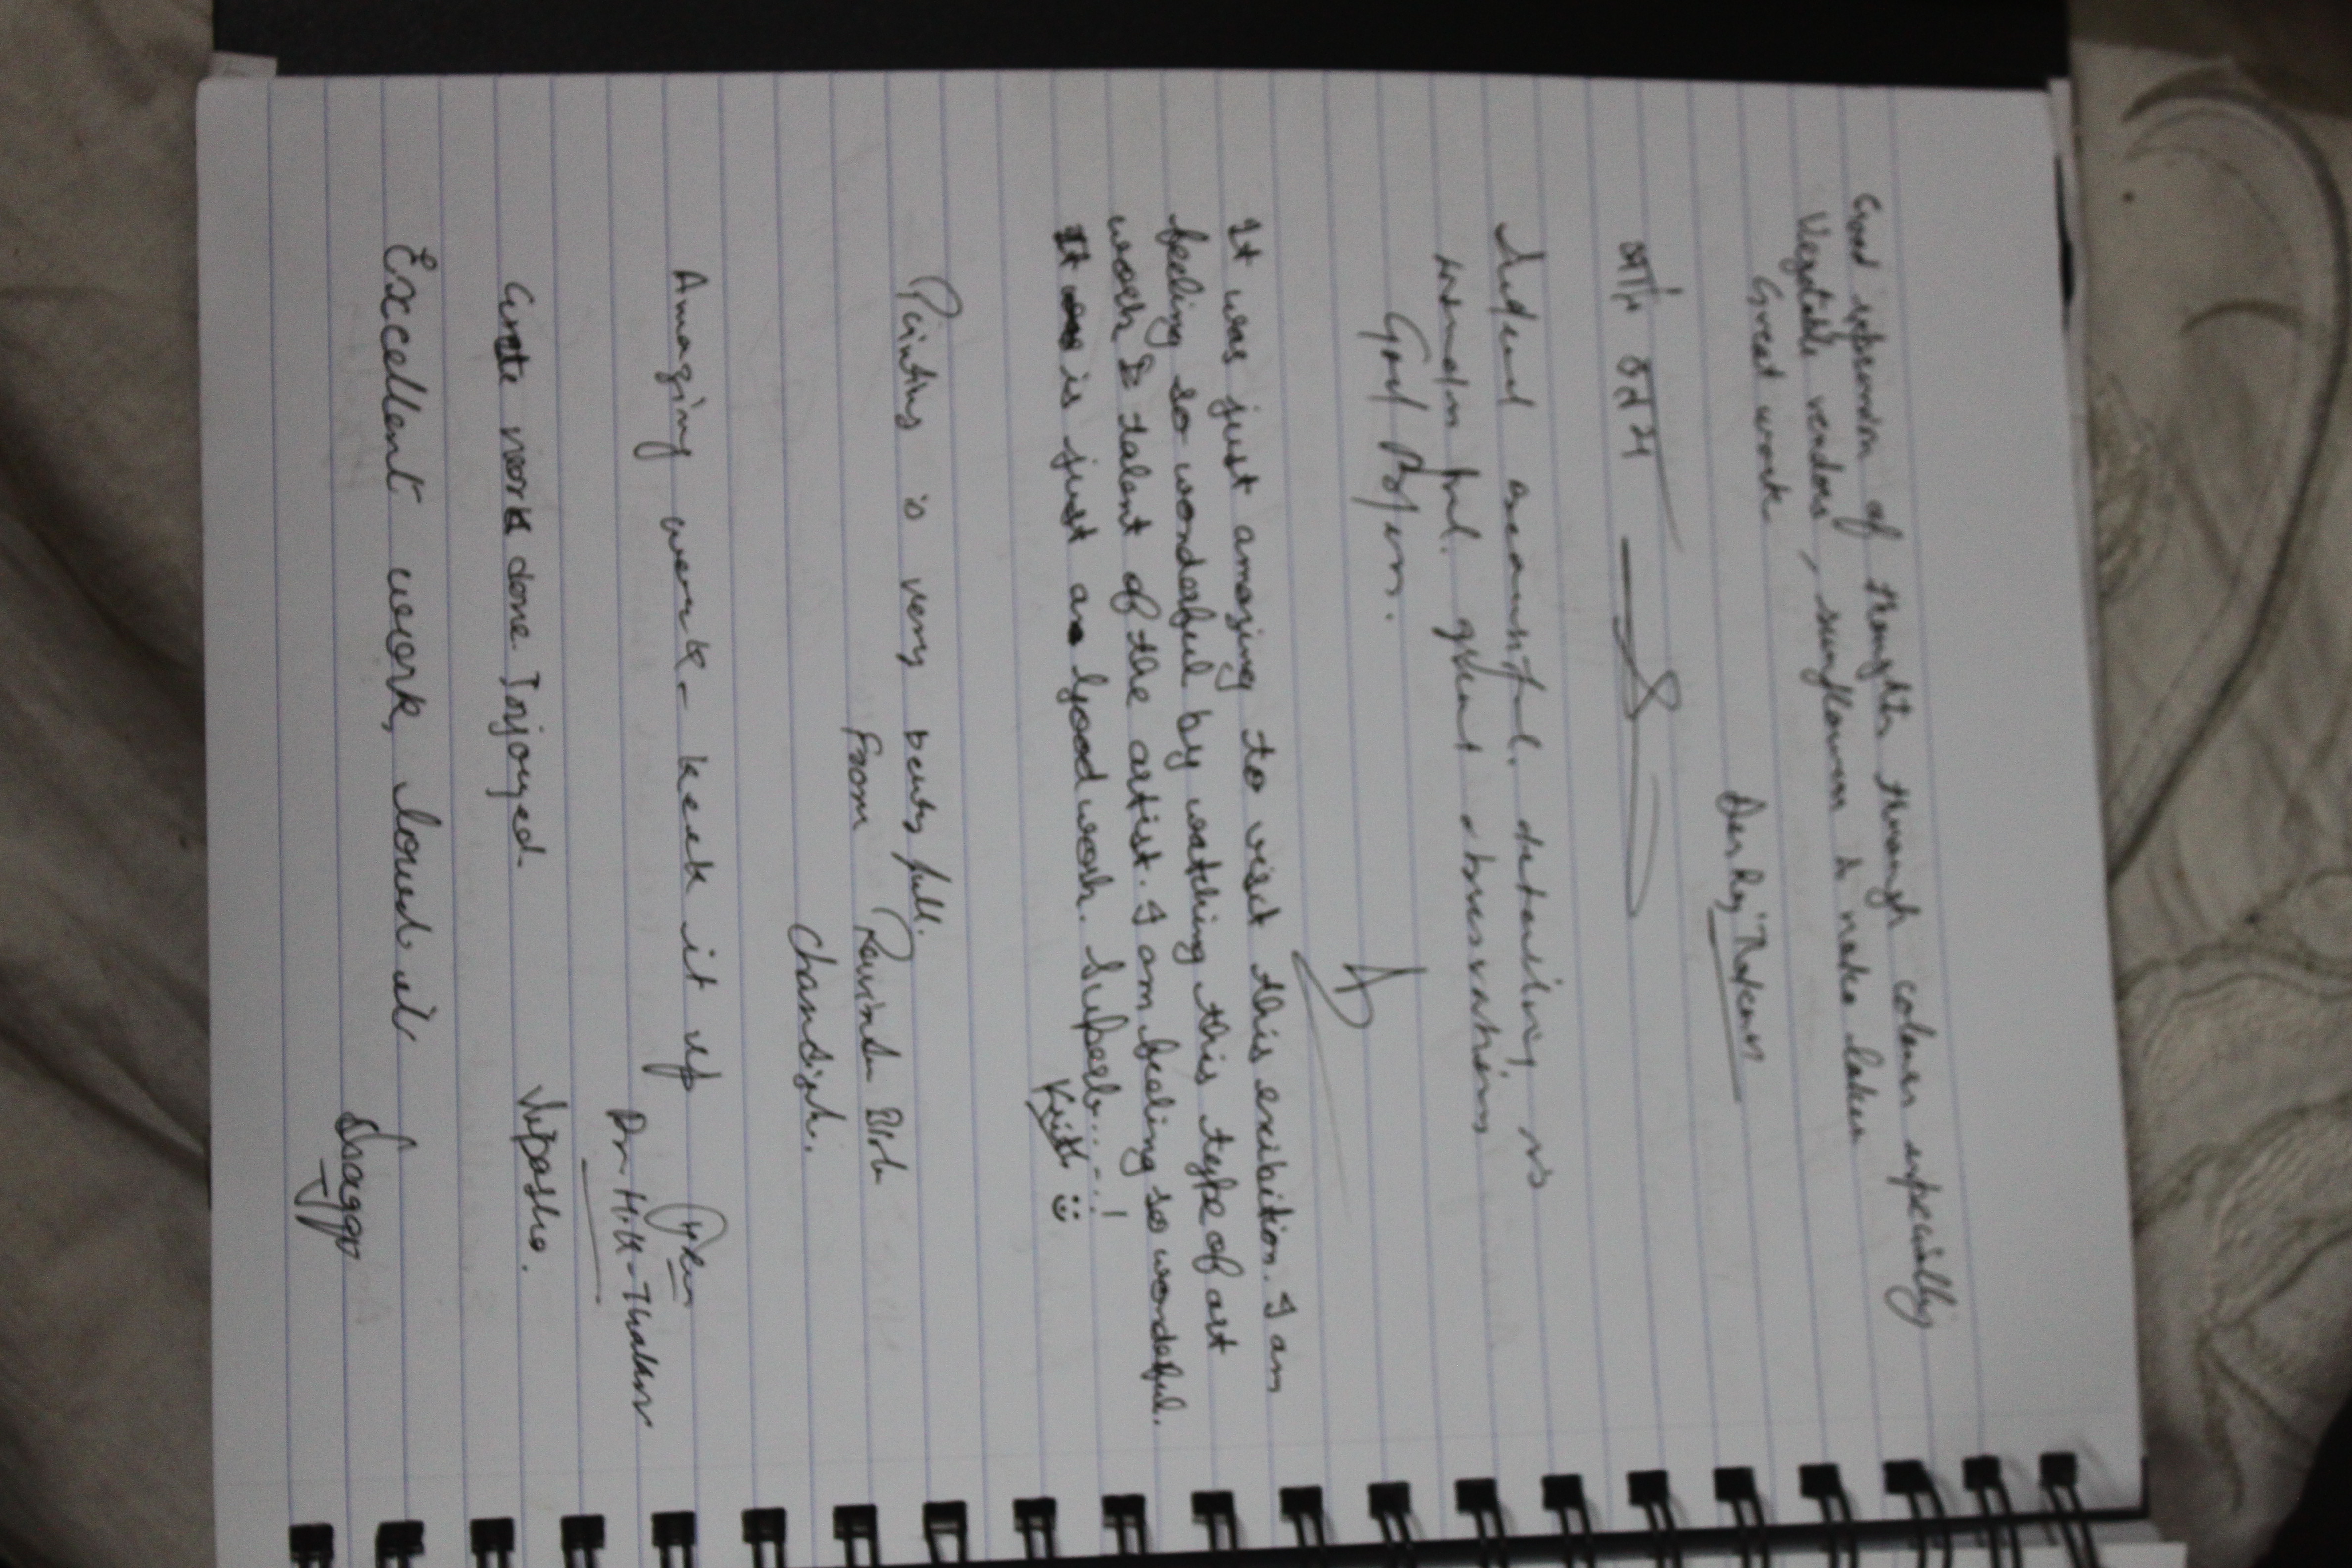 Good expression of thoughts through colours especially
Vegetable vendors, sunflowers &
Great work
अति उत्तम
wonderful. great observations
It was just amazing to visit this exibition. I am
feeling so wonderful by watching this type of art
work & talent of the artist. I am feeling so wondeful.
It is just a good work. Superb...!
Kirti :)
Painting is very beuty full.
From Ravinder
Chandigh.
Amazing work - keek it up
Dr. H.K. Thakur
Grate work done. Injoyed.
Vipasha.
Excellent work, loved it